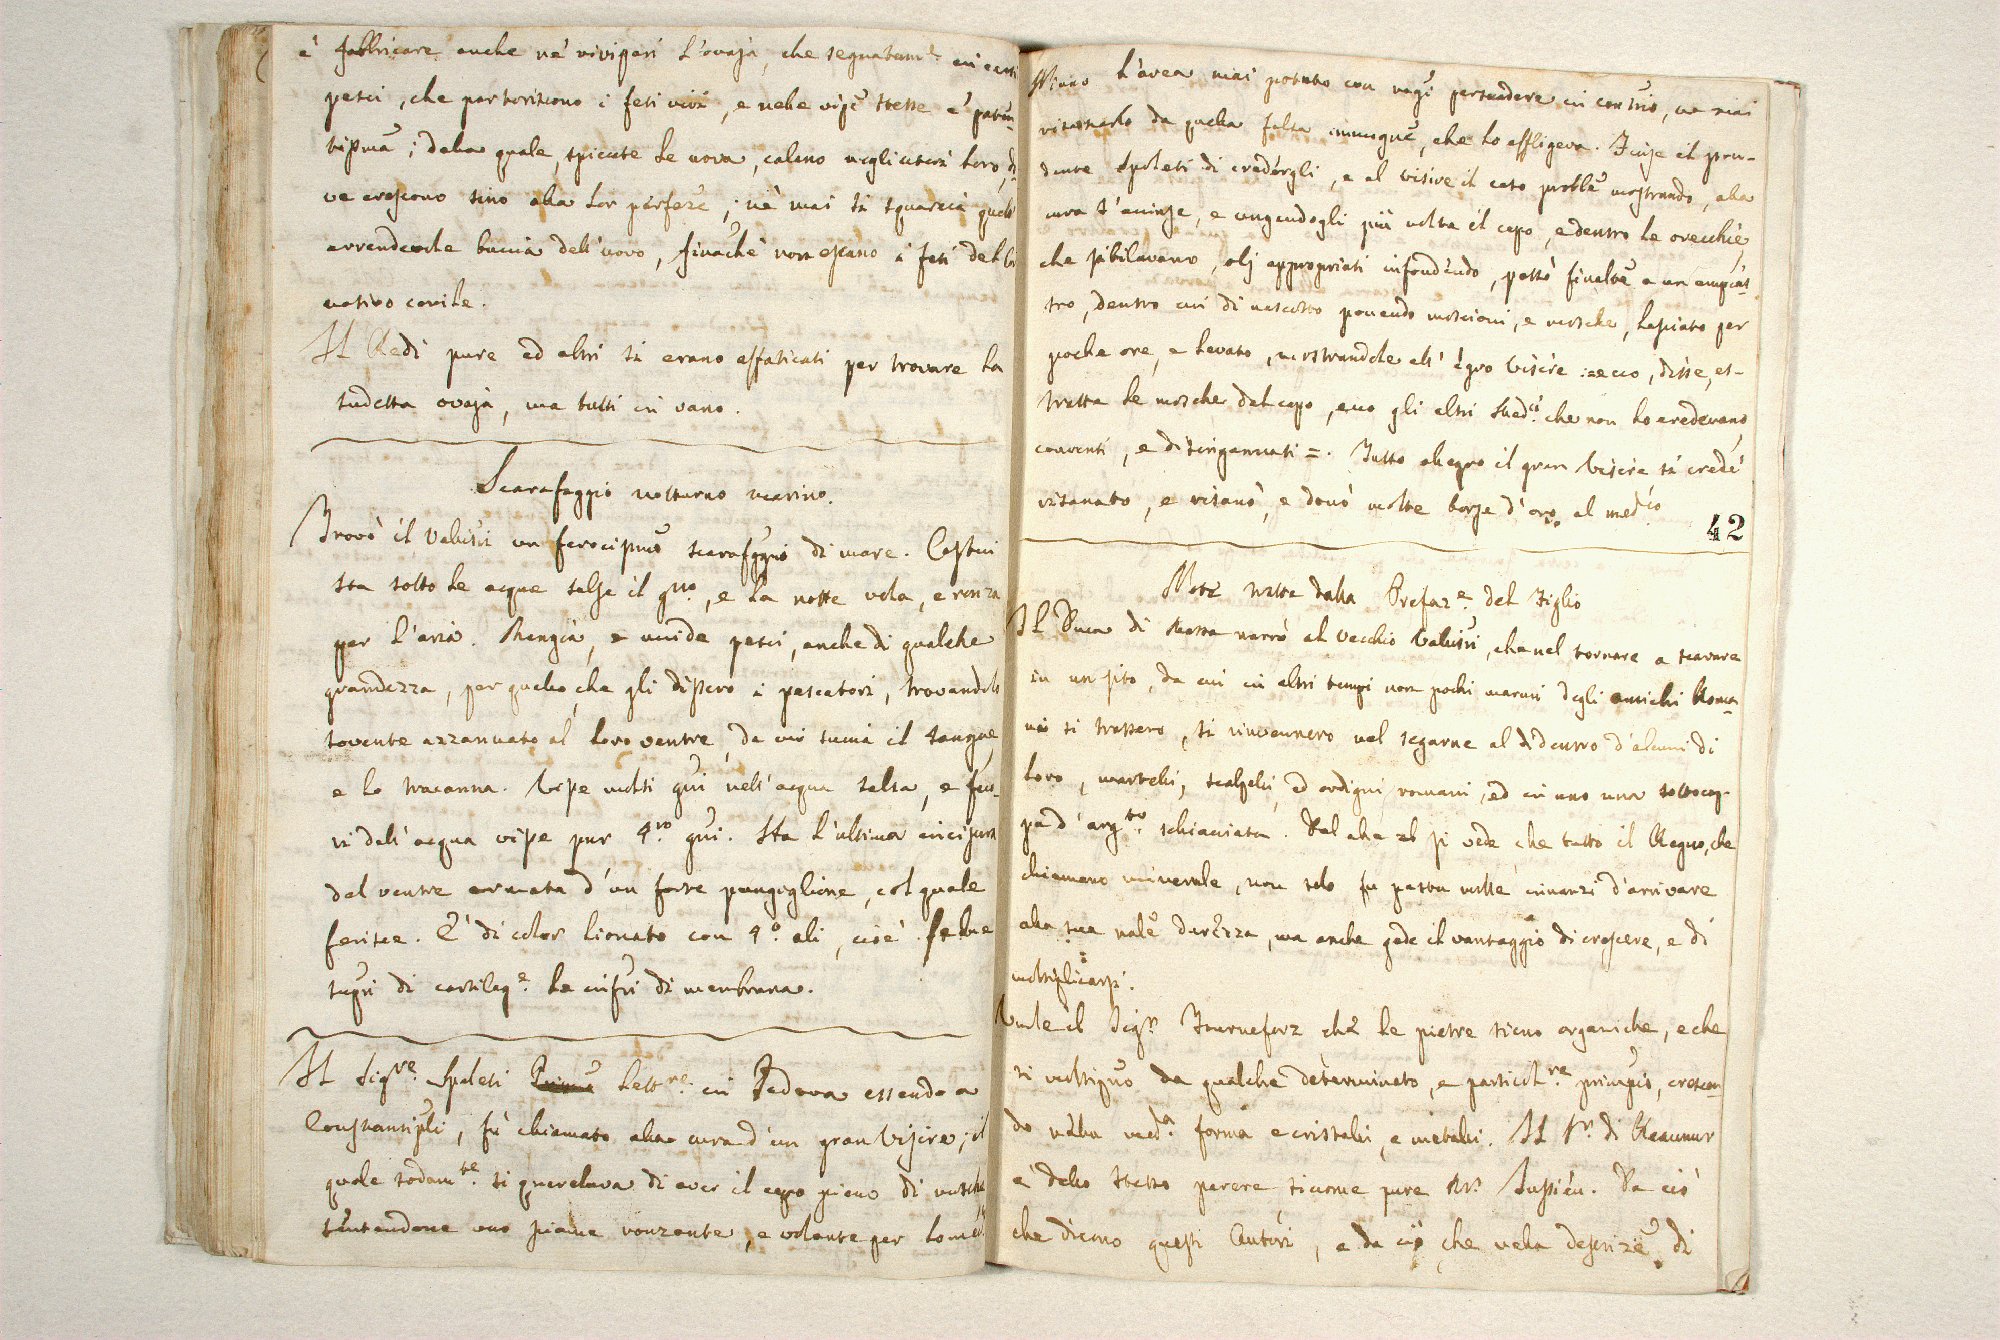 è fabbricare anche ne' vivipari l'ovaja, che segnatam.e in certi
pesci, che partoriscono i feti vivi, e nelle vipe stesse è paten-
tissima; dalla quale, spiccate le uova, calano negli uteri loro, do-
ve crescono sino alla lor perfeze; nè mai si squarcia quella
arrendevole buccia dell'uovo, finachè non escano i feti dal lor
nativo covile.
Il Redi pure ed altri si erano affaticati per trovare la
sudetta ovaja, ma tutti in vano.
Scarafaggio notturno marino.
Trovò il Valisñi un ferocissimo scarafaggio di mare. Costui
sta sotto le acque salse il gno, e la notte vola, e ronza
per l'aria. Mangia, e uccide pesci, anche di qualche
grandezza, per quello, che gli dissero i pescatori, trovandolo
sovente azzannato al loro ventre, da cui succia il sangue,
e lo tracanna. Visse molti gni nell'acqua salsa, e fuo-
ri dell'acqua visse pur 4.ro gni. Ha l'ultima incisura
del ventre armata d'un forte pungiglione, col quale
ferisce. È di color lionato con 4.o ali, cioè le due
supri di cartilag.e le infri di membrana.
Il Sig.re Spoleti Lett.re in Padova essendo a
Constantipli, fù chiamato alla cura d'un gran Visire; il
quale sodam.te si querelava di aver il capo pieno di mosche
sentendone uno sciame ronzante, e volante per lo med.
Niuno l'avea mai potuto con ragi persuadere in contrio, nè mai
risanarlo da quella falsa immagne, che lo affligeva. Finse il pru-
dente Spoleti di credergli, e al visire il caso probble mostrando, alla
cura s'accinse, e ungendogli più volte il capo, e dentro le orecchie,
che sibilavano, olj appropriati infondendo, passò finalte a un empias-
tro, dentro cui di nascosto ponendo moscioni, e mosche, lasciato per
poche ore, e levato, mostrandole all'egro Visire: ecco, disse, es-
tratte le mosche dal capo, ecco gli altri Med.ci che non lo credevano
convinti, e disingannati =. Tutto allegro il gran Visire si credè
risanato, e risanò, e donò molte borse d'oro al med.co
42
Note tratte dalla Prefaz.e del Figlio
Il Duca di Massa narrò al vecchio Valisñi, che nel tornare a scavare
in un sito, da cui in altri tempi non pochi marmi dagli antichi Roma-
ni si trassero, si rinvennero nel segarne al di dentro d'alcuni di
loro, martelli, scalpelli, ed ordigni romani, ed in uno una sottocop-
pa d'arg.to schiacciata. Dal che si vede che tutto il Regno, che
chiamano minerale, non solo fu pasta molle innanzi d'arrivare
alla sua nale durezza, ma anche gode il vantaggio di crescere, e di
moltiplicarsi.
Vuole il Sig.r Tourneforz che le pietre sieno organiche, e che
si moltiplino da qualche determinato, e particol.re principio, crescen-
do nella med.a forma e cristalli, e metalli. Il Sr. di Reaumur
è dello stesso parere, siccome pure Mr. Jussieu. Da ciò
che dicono questi Autori, e da ciò, che nella descrize di